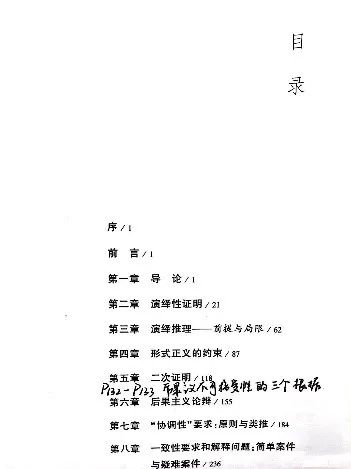 目
录
序 / 1
前 言 / 1
第一章 导 论 / 1
第二章 演绎性证明 / 21
第三章 演绎推理——前提与局限 / 62
第四章 形式正义的约束 / 87
第五章 二次证明 / 118
P132-P133 不可接受性的三个根据
第六章 后果主义论辩 / 155
第七章 “协调性”要求:原则与类推 / 184
第八章 一致性要求和解释问题:简单案件
与疑难案件 / 236